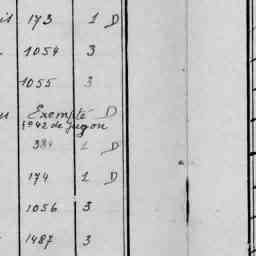 173 1 D
1054 3
1055 3
Exempté D
no 42 de Jugon
384 1 D
174 1 D
1056 3
1487 3